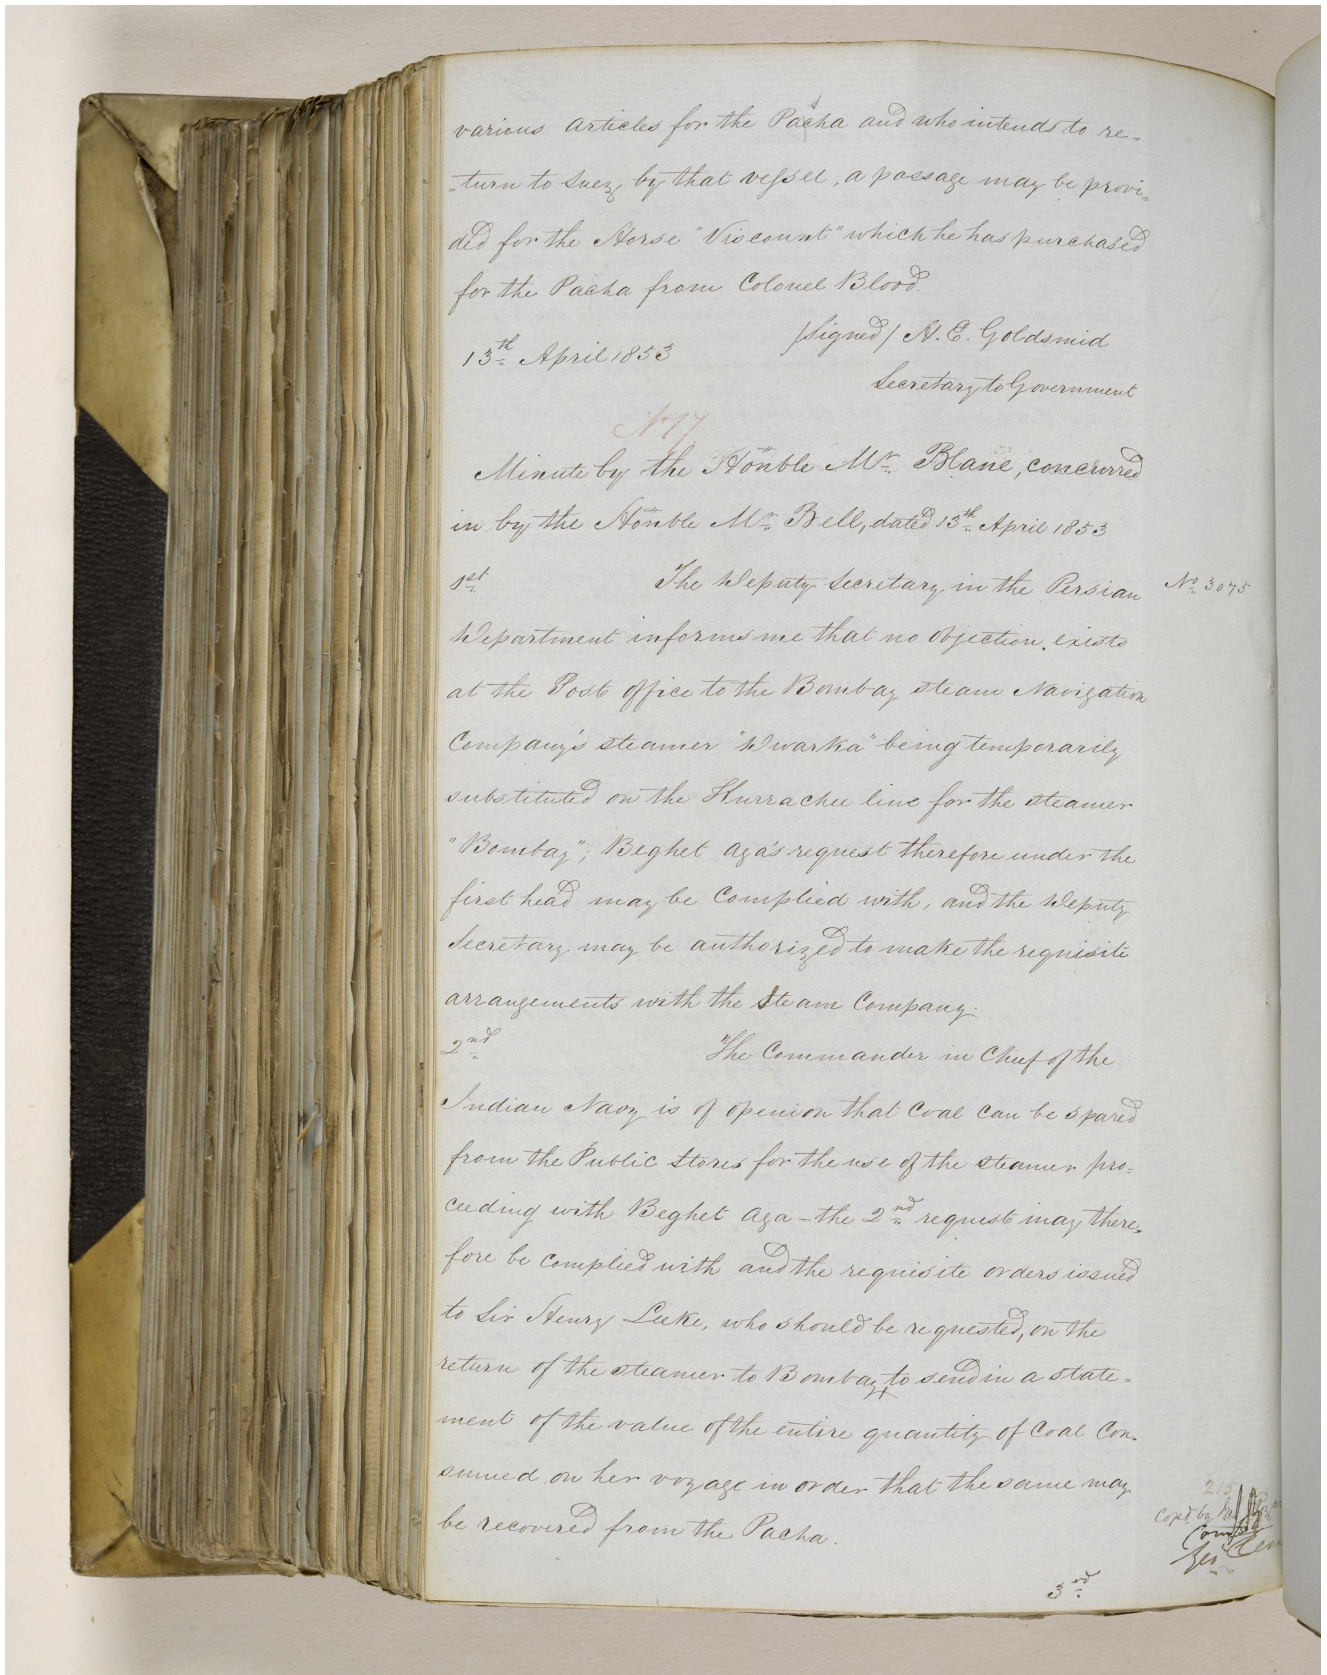 various articles for the Pacha and who intends to re-
-turn to Suez by that vessel, a passage may be provi-
ded for the Horse "Viscount" which he has purchased
for the Pacha from Colonel Blood.
/signed/ H. E. Goldsmid
13th April 1853
Secretary to Government
N 17
Minute by the Honble Mr. Blane, concurred
in by the Honble Mr. Bell, dated 13th April 1853
1st The Deputy Secretary in the Persian No. 3075
Department informs me that no objection exists
at the Post office to the Bombay Steam Navigation
Company's steamer "Dwarka" being temporarily
substituted on the Kurrachee line for the steamer
"Bombay"; Beghet Aga's request therefore under the
first head may be complied with, and the Deputy
Secretary may be authorized to make the requisite
arrangements with the Steam Company.
2nd The Commander in Chief of the
Indian Navy is of openion that Coal can be spared
from the Public Stores for the use of the steamer pro-
ceeding with Beghet Aga – the 2nd request may there-
fore be complied with and the requisite orders issued
to Sir Henry Leeke, who should be requested, on the
return of the steamer to Bombay, to send in a state-
ment of the value of the entire quantity of Coal Con-
sumed on her voyage in order that the same may
be recovered from the Pacha.
215
Copd. by
Com
3rd